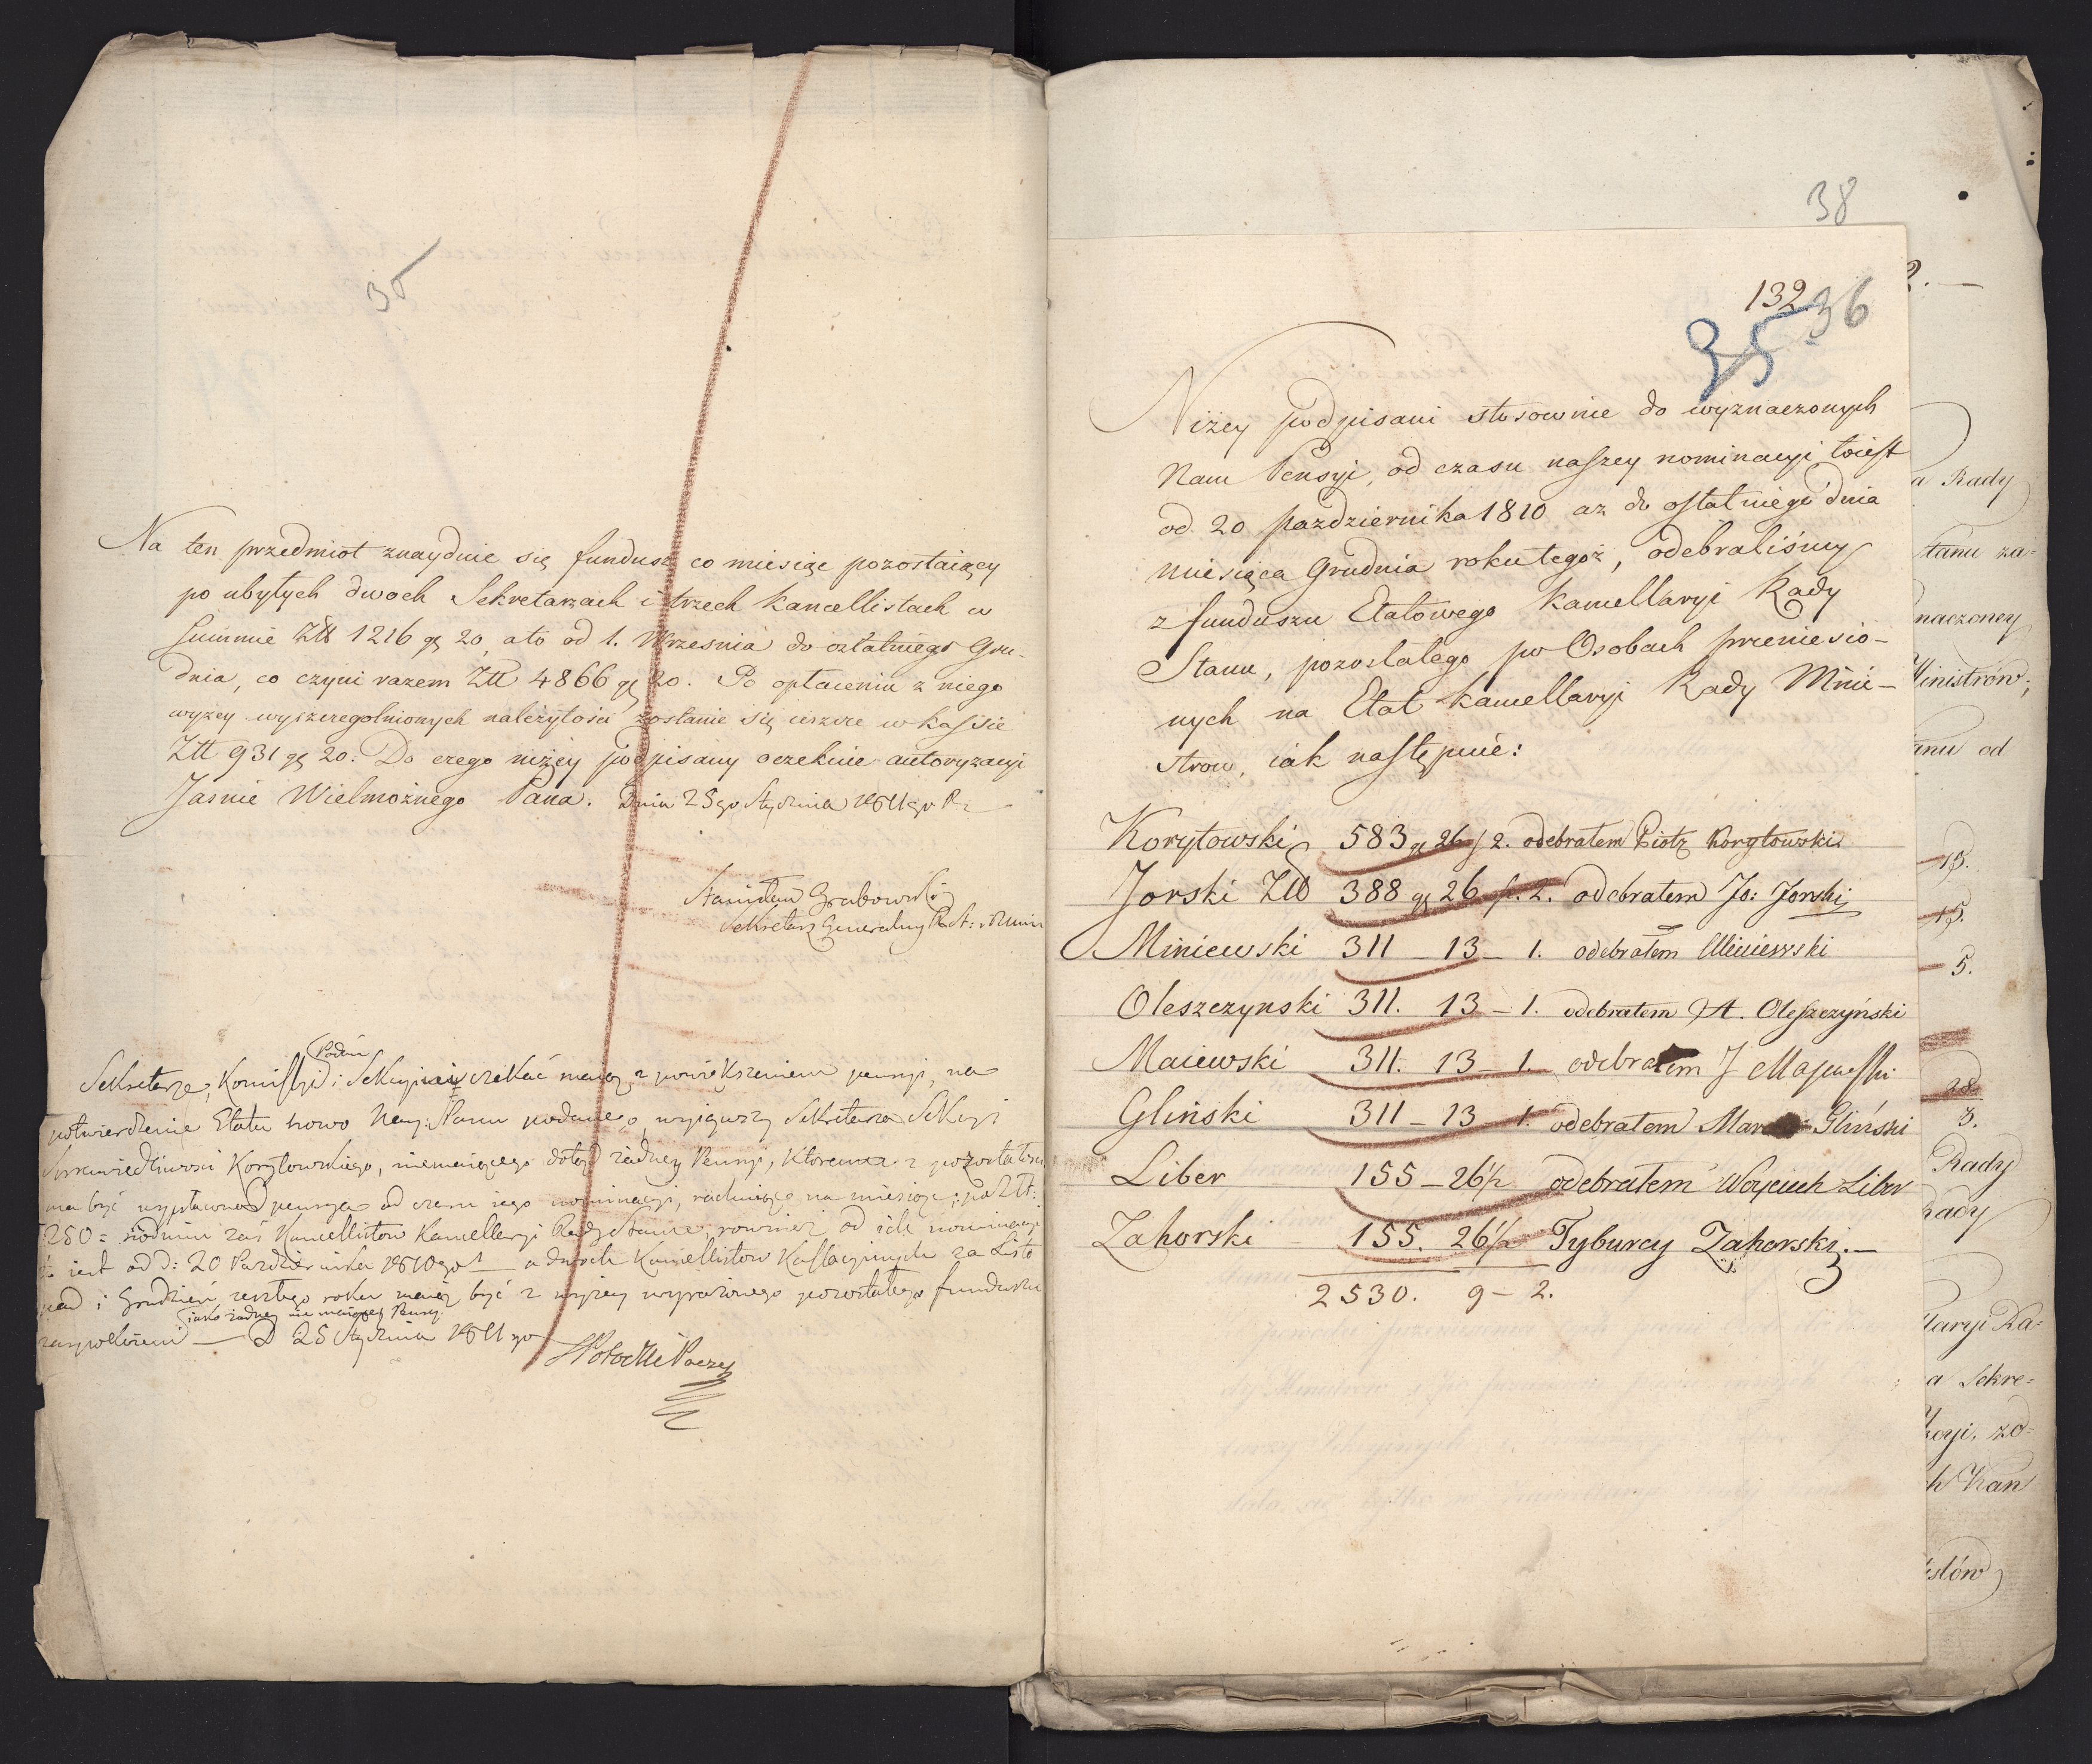 35
Na ten przedmiot znayduie się fundusz co miesiąc pozostaiący
po ubyłych dwoch Sekretarzach i trzech Kancellistach w
Summie Ztt 1216 gr 20, a to od 1. Wrzesnia do ostatniego Gru-
dnia, co czyni razem Ztt 4866 gr 20. Po opłaceniu z niego
wyzey wyszczegolnionych należytości zostanie się ieszcze w kassie
Ztt 931 gr 20. Do czego niżey podpisany oczekuie autoryzacyi
Jasnie Wielmożnego Pana. Dnia 25go Stycznia 1811go R:
Stanisław Grabowski
Sekretarz Generalny R. St: i Min
Podań
Sekretarze, Komissyi i Sekcyi czekać maią z powiększeniem pensyi, na
potwierdzenie Etatu nowo Nay: Panu podanego, wyiąwszy Sekretarza Sekcyi
Sprawiedliwosci Korytowskiego, niemaiącego dotąd żadney Pensyi, ktoremu z pozostałości
ma być wypłacona pensya od czasu iego nominacyi, rachuiąc na miesiąc po Ztt:
250 = siodmiu zaś Kancellistow Kancellaryi Rady Stanu rownież od ich nominacyi
to iest od d: 20 Pazdziernika 1810go a dwoch Kancellistow Kassacyinych za Listo
pad i Grudzień zeszłego roku maią być z wyżey wyrażonego pozostałego funduszu
iako żadney nie maiących Pensyi.
zaspokoieni — D 25 Stycznia 1811go
SPotocki Prezes
38
132
36
35
Niżey podpisani stosownie do wyznaczonych
Nam Pensyi, od czasu naszey nominacyi toiest
od 20 pazdziernika 1810 az do ostatniego dnia
miesiąca Grudnia roku tegoż, odebraliśmy
z funduszu Etatowego Kancellaryi Rady
Stanu, pozostałego po Osobach przeniesio-
nych na Etat Kancellaryi Rady Mini-
strow, iak następuie:
Korytowski 583 gr 26 f 2. odebrałem Piotr Korytowski
Jorski Ztt 388 gr 26 f. 2. odebrałem Jo: Jorski
Miniewski 311 - 13 - 1. odebrałem Miniewski
Oleszczynski 311. 13 - 1. odebrałem A. Oleszczyński
Maiewski 311. 13 - 1. odebrałem J Majewski
Gliński 311 - 13 - 1. odebrałem Gliński
Liber 155 - 26 1/2 odebrałem Woyciech Liber
Zahorski 155. 26 1/2 Tyburcy Zahorski. —
2530. 9 - 2.
a Rady
Stanu za=
naczoney
Ministrów;
anu od
15.
15.
5.
28
3.
Rady
Rady
llaryi Ra=
a Sekre=
kcyi, zo=
h Kan
istów